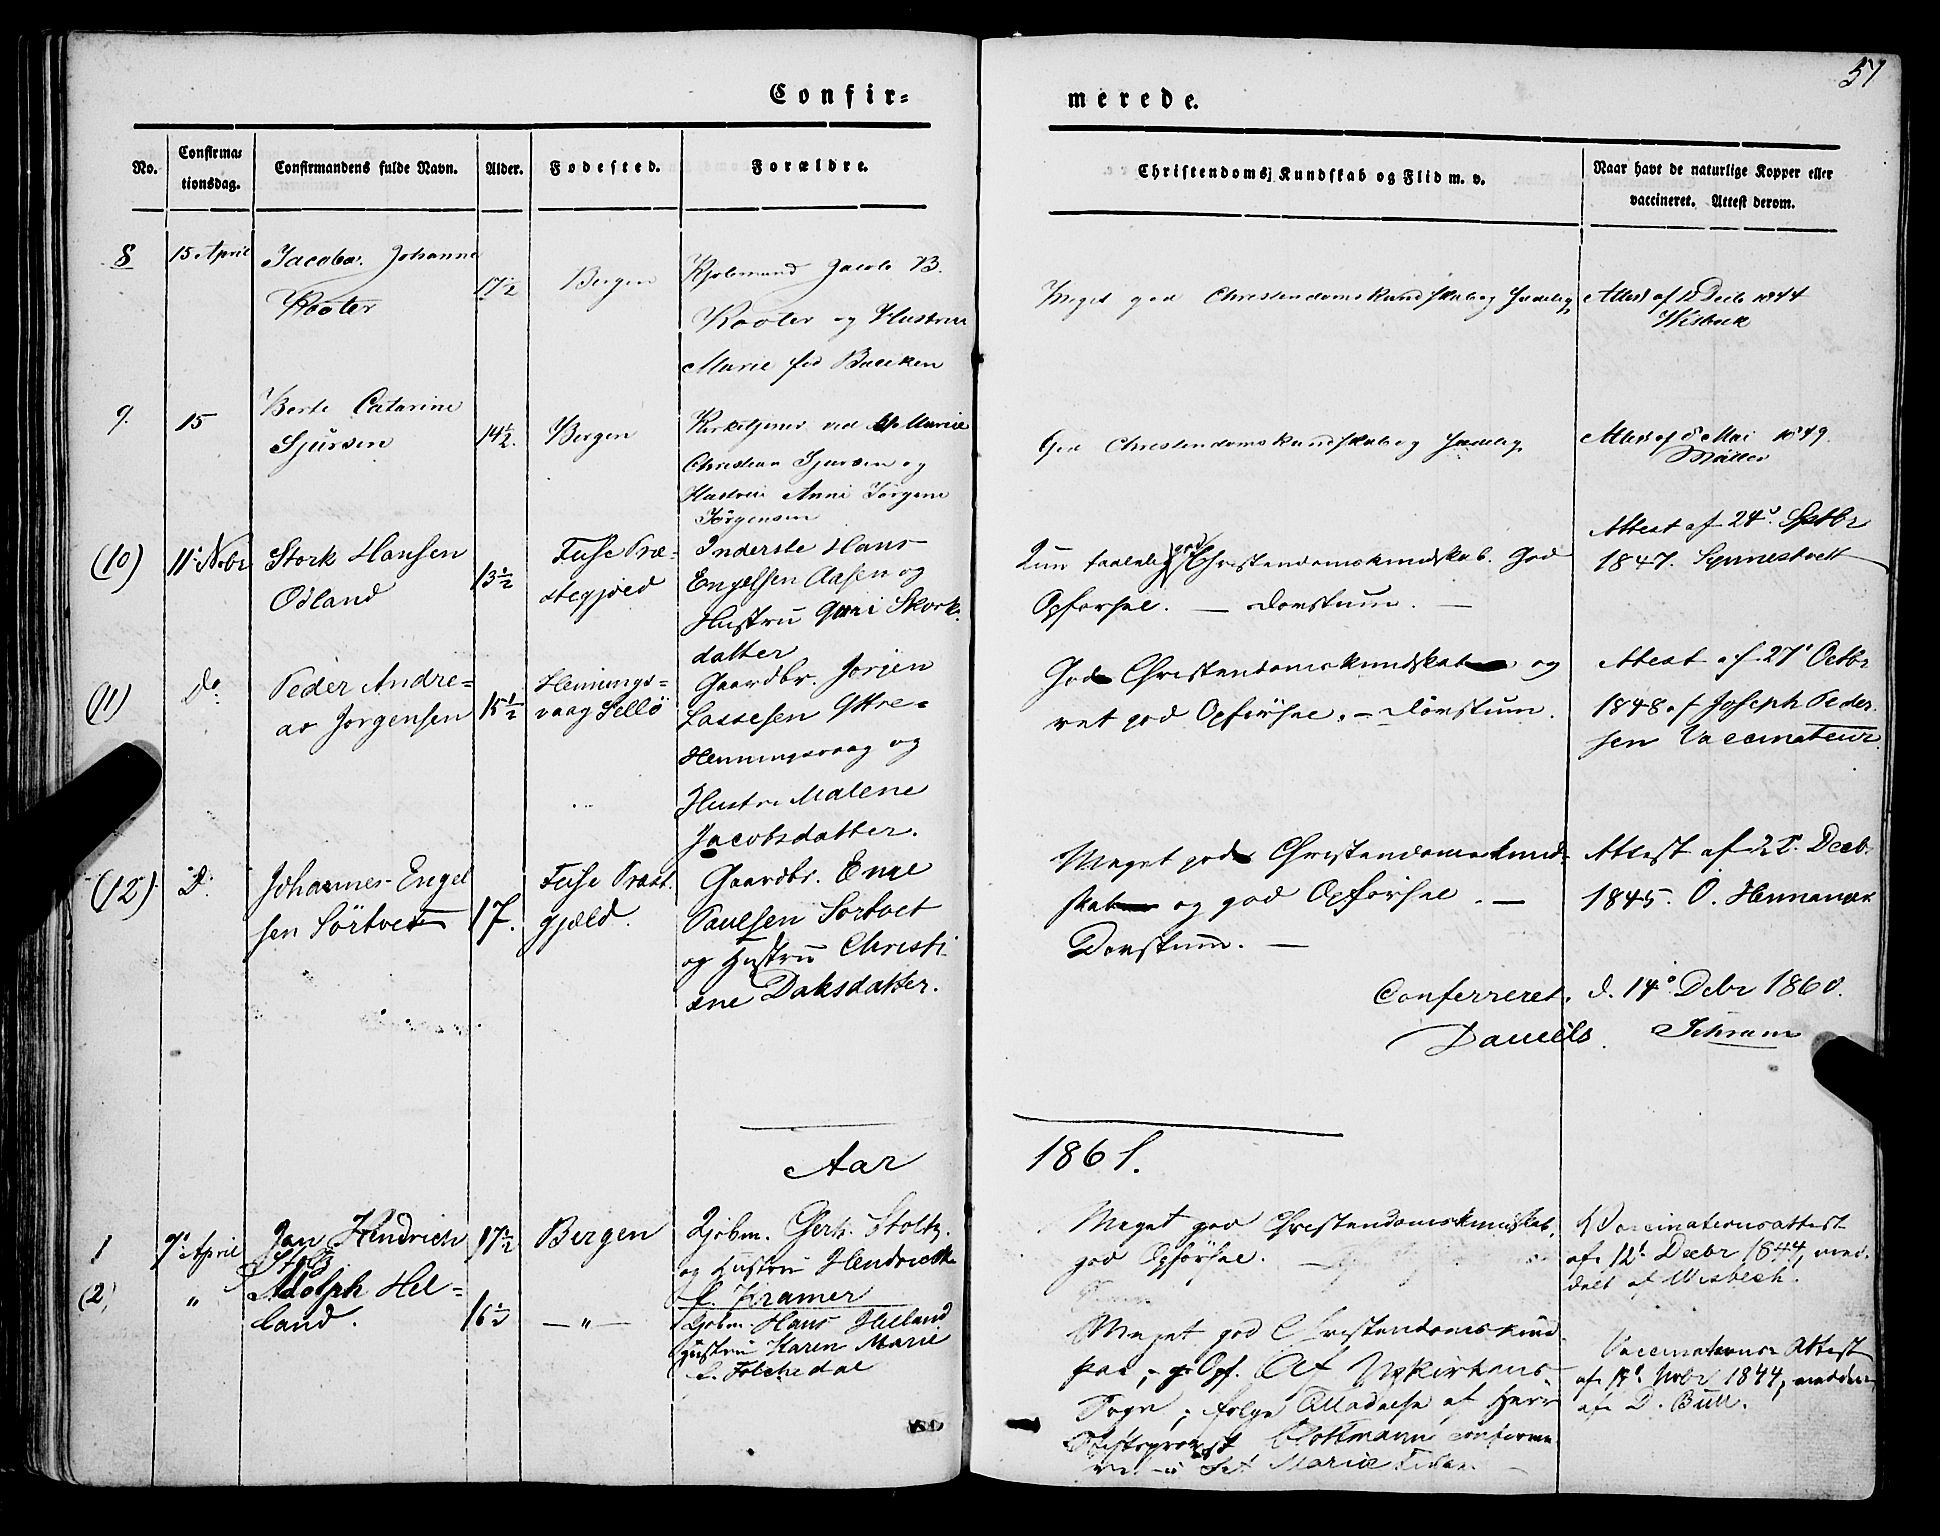 Confir=
merede.
57
No.
Confirma=
tionsdag.
Confirmandens fulde Navn.
Alder.
Fodested.
Forældre.
Christendoms Kundskab og Flid m. v.
Naar havt de naturlige Kopper eller
vaccineret. Attest derom.
8 15 April Jacoba Johanne
Kooter
17½ Bergen
Kjøbmand Jacob B.
Kooter og Hustrue
Marie fød Baecken
Meget god Christendomskundskab og
Attest af 12 Decb 1844
Wisbeck
9. 15 Berte Catarine
Sjursen
14½. Bergen
Kirketjener ved St Marie
Christian Sjursen og
Hustrue Anni Jørgene
Jörgensen
God Christendomskundskab og
Attest af 8 Mai 1849.
Möller
(10) 11t Novbr Stork Hansen
Odland
13½ Fuse Præ-
stegjæld
Inderste Hans
Engelsen Aasen og
Hustru Guri Skork.
datter
god Christendomskundskab. God
Opførsel. — Dorstum. —
Attest af 24de Septbr
1847. Synnestvedt
(11) Do Peder Andre=
as Jorgensen
15½ Hennings=
vaag Sellö
Gaardbr. Jorjen
Lassesen Yttre-
Henningsvaag og
Hustru Malene
Jacobsdatter.
God Christendomskundskab og
ret god Opførsel. – Dorstum.
Attest af 27' Octbr
1848 af Joseph Peder-
sen Vaccinateur.
(12) Do Johannes Engel
sen Sörtvet
17. Fuse Præst.
gjæld.
Gaardbr. Engel
Paulsen Sortvet
og Hustru Christi
ane Daksdatter.
Meget god Christendomskund-
skab og god Opførsel. —
Dorstum. —
Attest af 22. Decbr
1845. O. Hennanger
Conferreret. d. 14de Debr 1860.
Daniels. Schram
Aar 1861.
1 7' April Jan Hendrich
Stoltz
17½ Bergen
Kjøbm. Gerh. Stoltz.
og Hustru Hendrickke
f. Kramer
Meget god Christendomskundskab,
god Opførsel.
Vaccinationsattest
af 12' Decbr 1844, med-
delt af Wisbech.
(2) " Adolph Hel=
land.
16½ — " —
Kjøbm. Hans Helland
Hustru Karen Marie
f. Folchedal
Meget god Christendomskund
skab, g. Opf. Af Nykirkens
Sogn; ifølge Tilladelse af Herr
Stiftsprovst Clottmann confirme
ret i Sct Mariæ Kirke.
Vaccinations Attest
af 19' Novbr 1844, meddelt
af D. Bull.